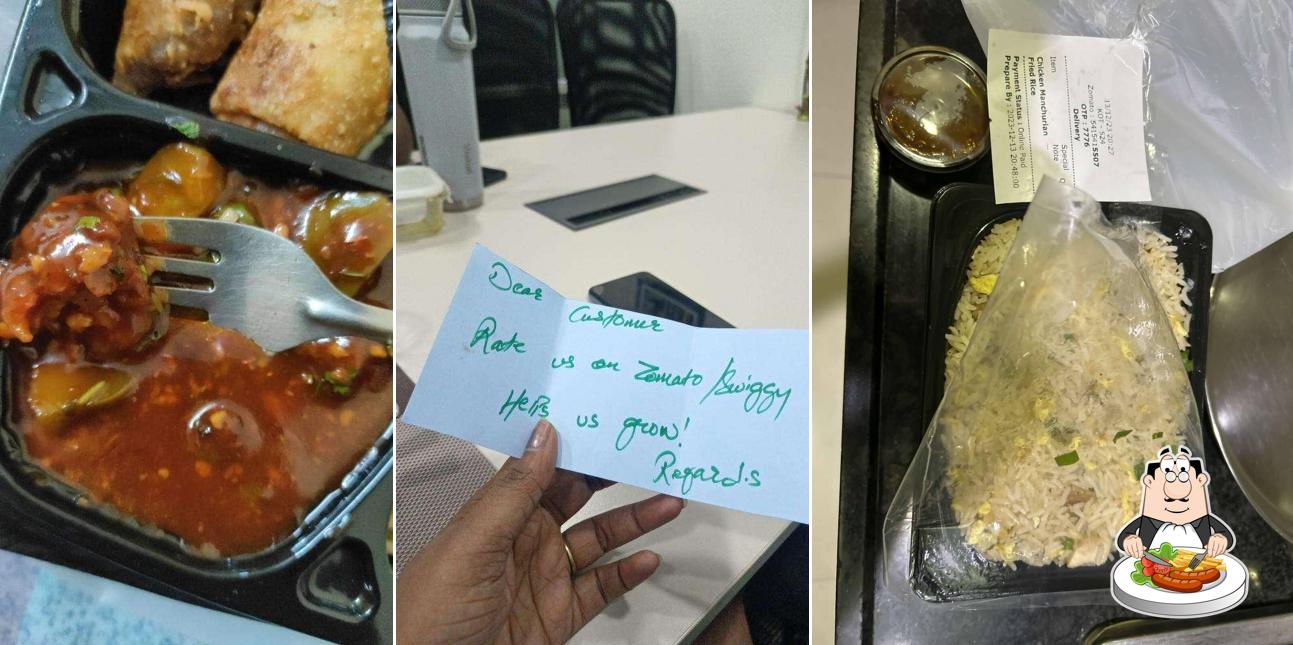 Dear
Customer
Rate us on Zomato/Swiggy
Helps us grow!
Regards
13/12/23 20:27
KOT - 524
Zomato : 5415415507
OTP : 7776
Delivery
Item Special Note
Chicken Manchurian
Fried Rice
Payment Status : Online Paid
Prepare By : 2023-12-13 20:48:00